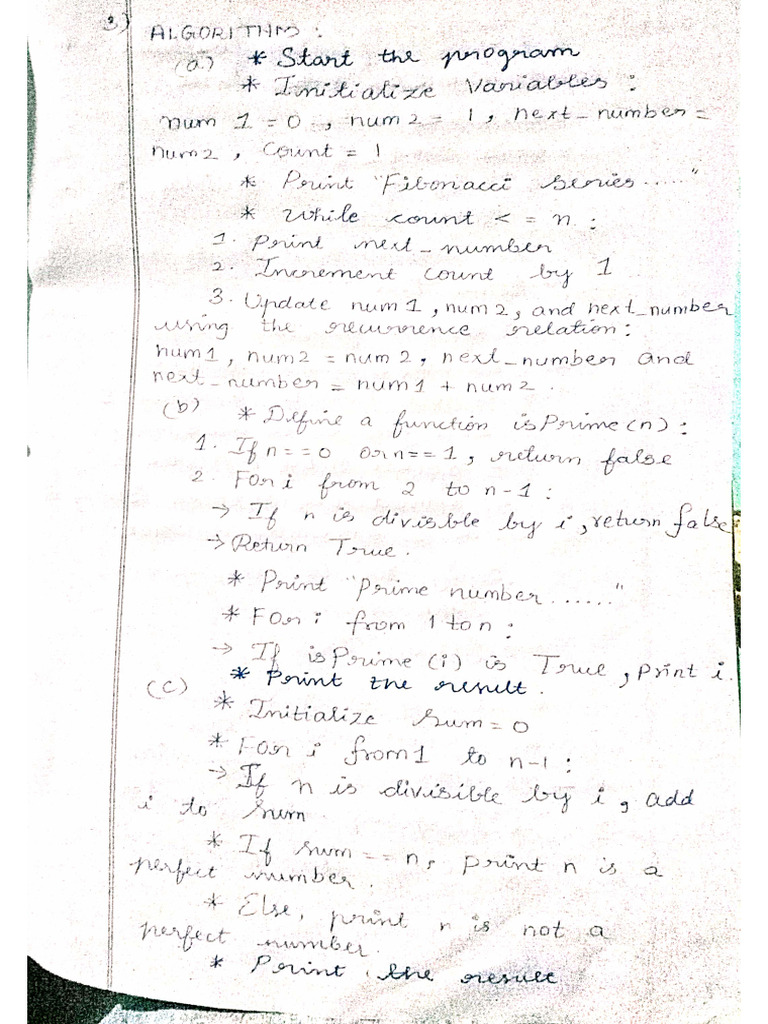 3) ALGORITHM :
(a.) * Start the program
* Initialize Variables :
num 1 = 0 , num 2 = 1 , next_number =
num2 , Count = 1
* Print "Fibonacci series ....."
* While count < = n :
1. Print next_number
2. Increment count by 1
3. Update num 1 , num 2 , and next_number
using the recurrence relation :
num1 , num2 = num 2 , next_number and
next_number = num1 + num2 .
(b) * Define a function isPrime (n) :
1. If n == 0 or n == 1 , return false
2. For i from 2 to n-1 :
→ If n is divisble by i , return false
→ Return True .
* Print "Prime number ......"
* For i from 1 to n :
→ If isPrime (i) is True , print i.
* Print the result .
(c) * Initialize sum = 0
* For i from 1 to n-1 :
→ If n is divisible by i , add
i to sum
* If sum == n , print n is a
perfect number .
* Else, print n is not a
perfect number .
* Print the result